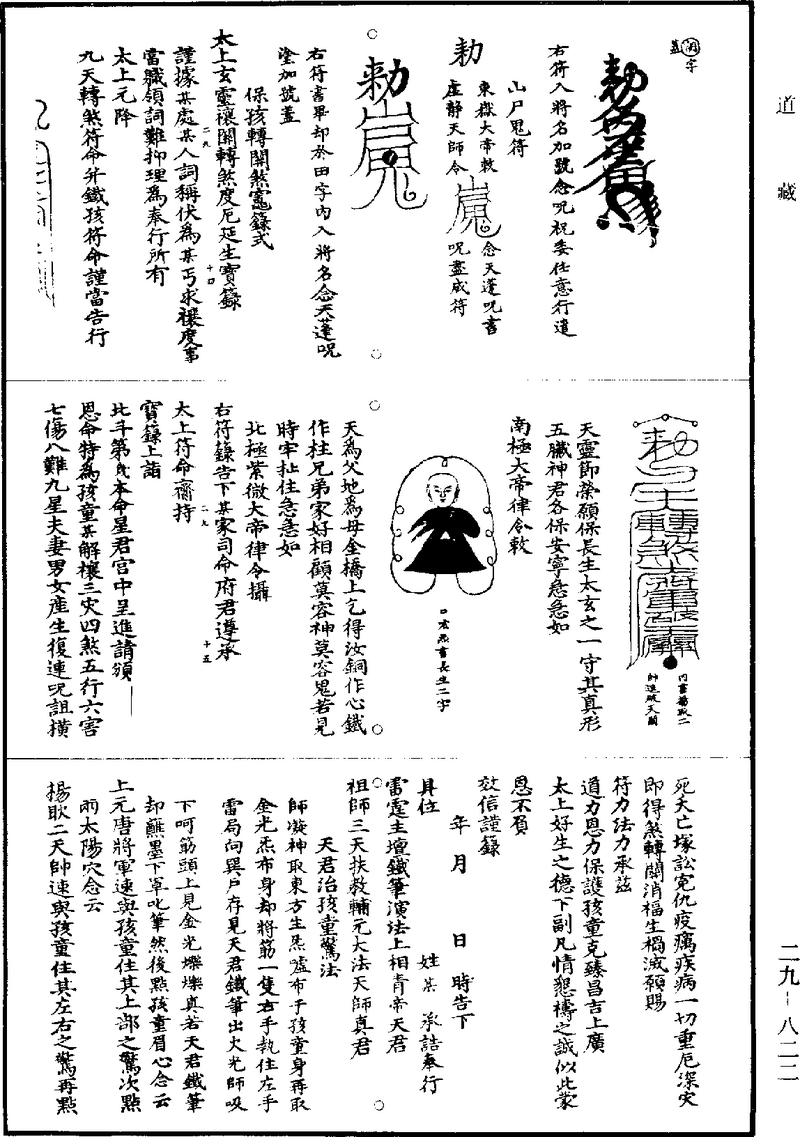 道藏
二九－八二二
㴞字
蓋
右符入將名加號念呪祝委任意行遣
山尸嵬符
東嶽大帝敕
虛靜天師令
念天蓬呪書
呪盡成符
勅
右符書畢却於田字內入將名念天蓬呪
塗加號蓋
保孩轉關煞寶籙式
太上玄靈禳關轉煞度厄延生寶籙
謹據某處某人詞稱伏為某丐求禳度事
當職領詞難抑理為奉行所有
太上元降
九天轉煞符命并鐵孩符命謹當告行
二九
十四
內書楊耿二
帥速破天關
天靈節榮願保長生太玄之一守其真形
五臟神君各保安寧急急如
南極大帝律令敕
書長生二字
天為父地為母金橋上乞得汝銅作心鐵
作柱兄弟家好相顧莫容神莫容鬼若見
時牢扯住急急如
北極紫微大帝律令攝
右符籙告下某家司命府君遵承
太上符命齎持
寶籙上詣
北斗第几本命星君宮中呈進請頒
恩命特為孩童某解禳三灾四煞五行六害
七傷八難九星夫妻男女產生復連呪詛橫
二九
十五
死夭亡塚訟冤仇疫癘疾病一切重厄深灾
即得煞轉關消福生禍滅願賜
符力法力承茲
道力恩力保護孩童克臻昌吉上廣
太上好生之德下副凡情懇禱之誠似此蒙
恩不負
效信謹籙
年月日時告下
具位姓某承誥奉行
雷霆主壇鐵筆演法上相青帝天君
祖師三天扶教輔元大法天師真君
天君治孩童驚法
師凝神取東方生炁噓布于孩童身再取
金光炁布身却將筯一隻右手執住左手
雷局向巽戶存見天君鐵筆出火光師吸
下呵筯頭上見金光爍爍真若天君鐵筆
却蘸墨下罩叱筆然後點孩童眉心念云
上元唐將軍速與孩童住其上部之驚次點
兩太陽穴念云
楊耿二天帥速與孩童住其左右之驚再點